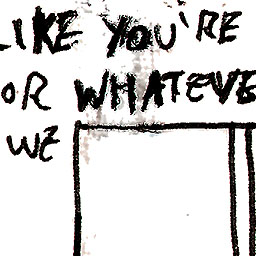 LIKE YOU'RE
OR WHATEVE
WE